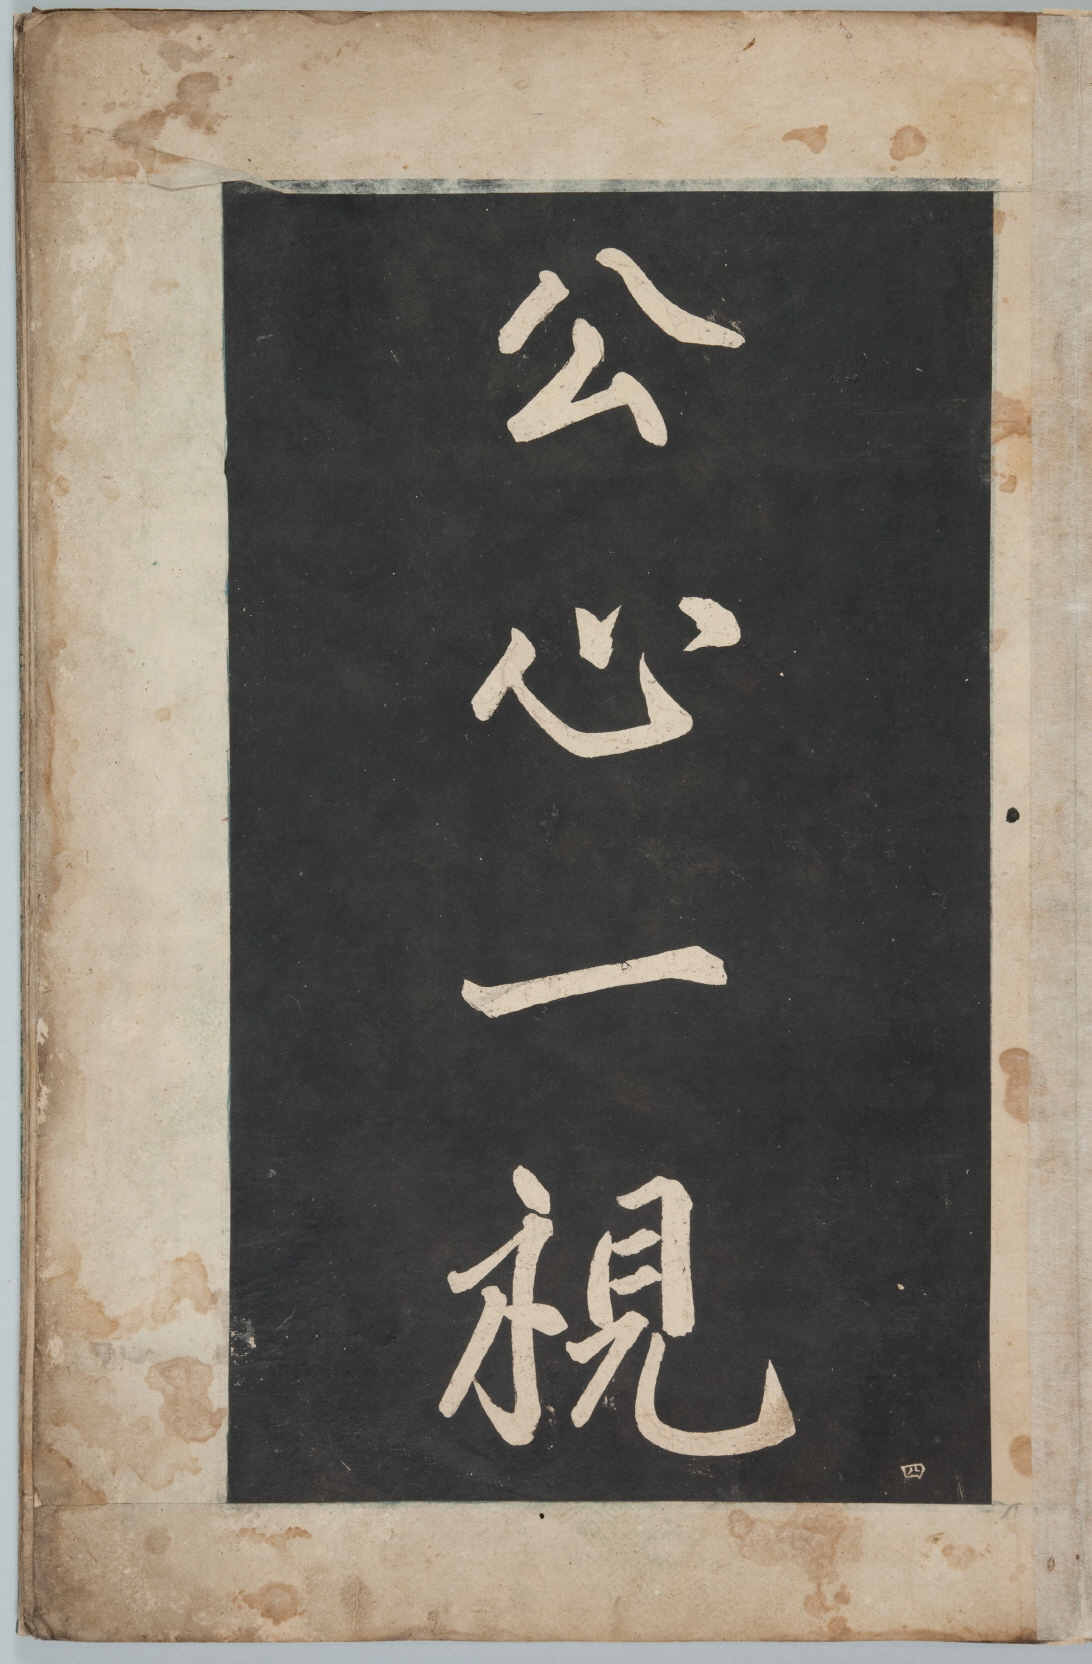 公心一視
四